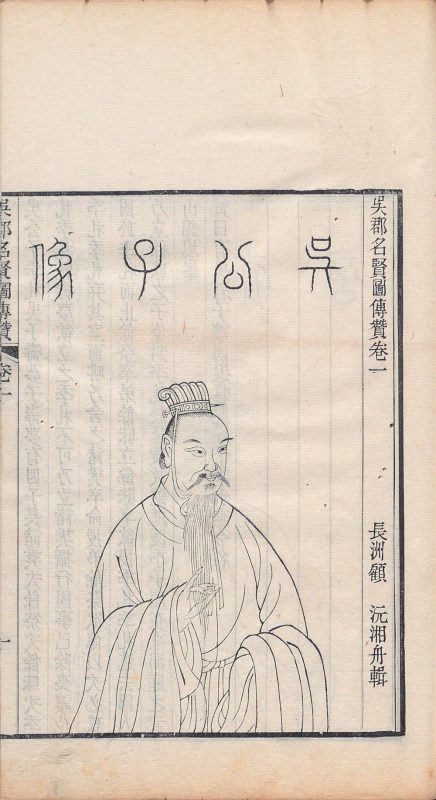 吳郡名賢圖傳贊卷一
長洲顧 沅湘舟輯
吳公子像
吳郡名賢圖傳贊 卷一
一